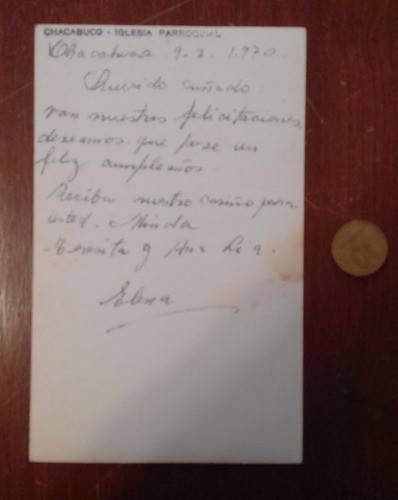 CHACABUCO - IGLESIA PARROQUIAL
Chacabuco 9-3-1970.
Querido cuñado:
van nuestras felicitaciones
deseamos que pase un
feliz cumpleaños
Reciba nuestro cariño para
usted. Minda
Teresita y Ana Lia.
Elena